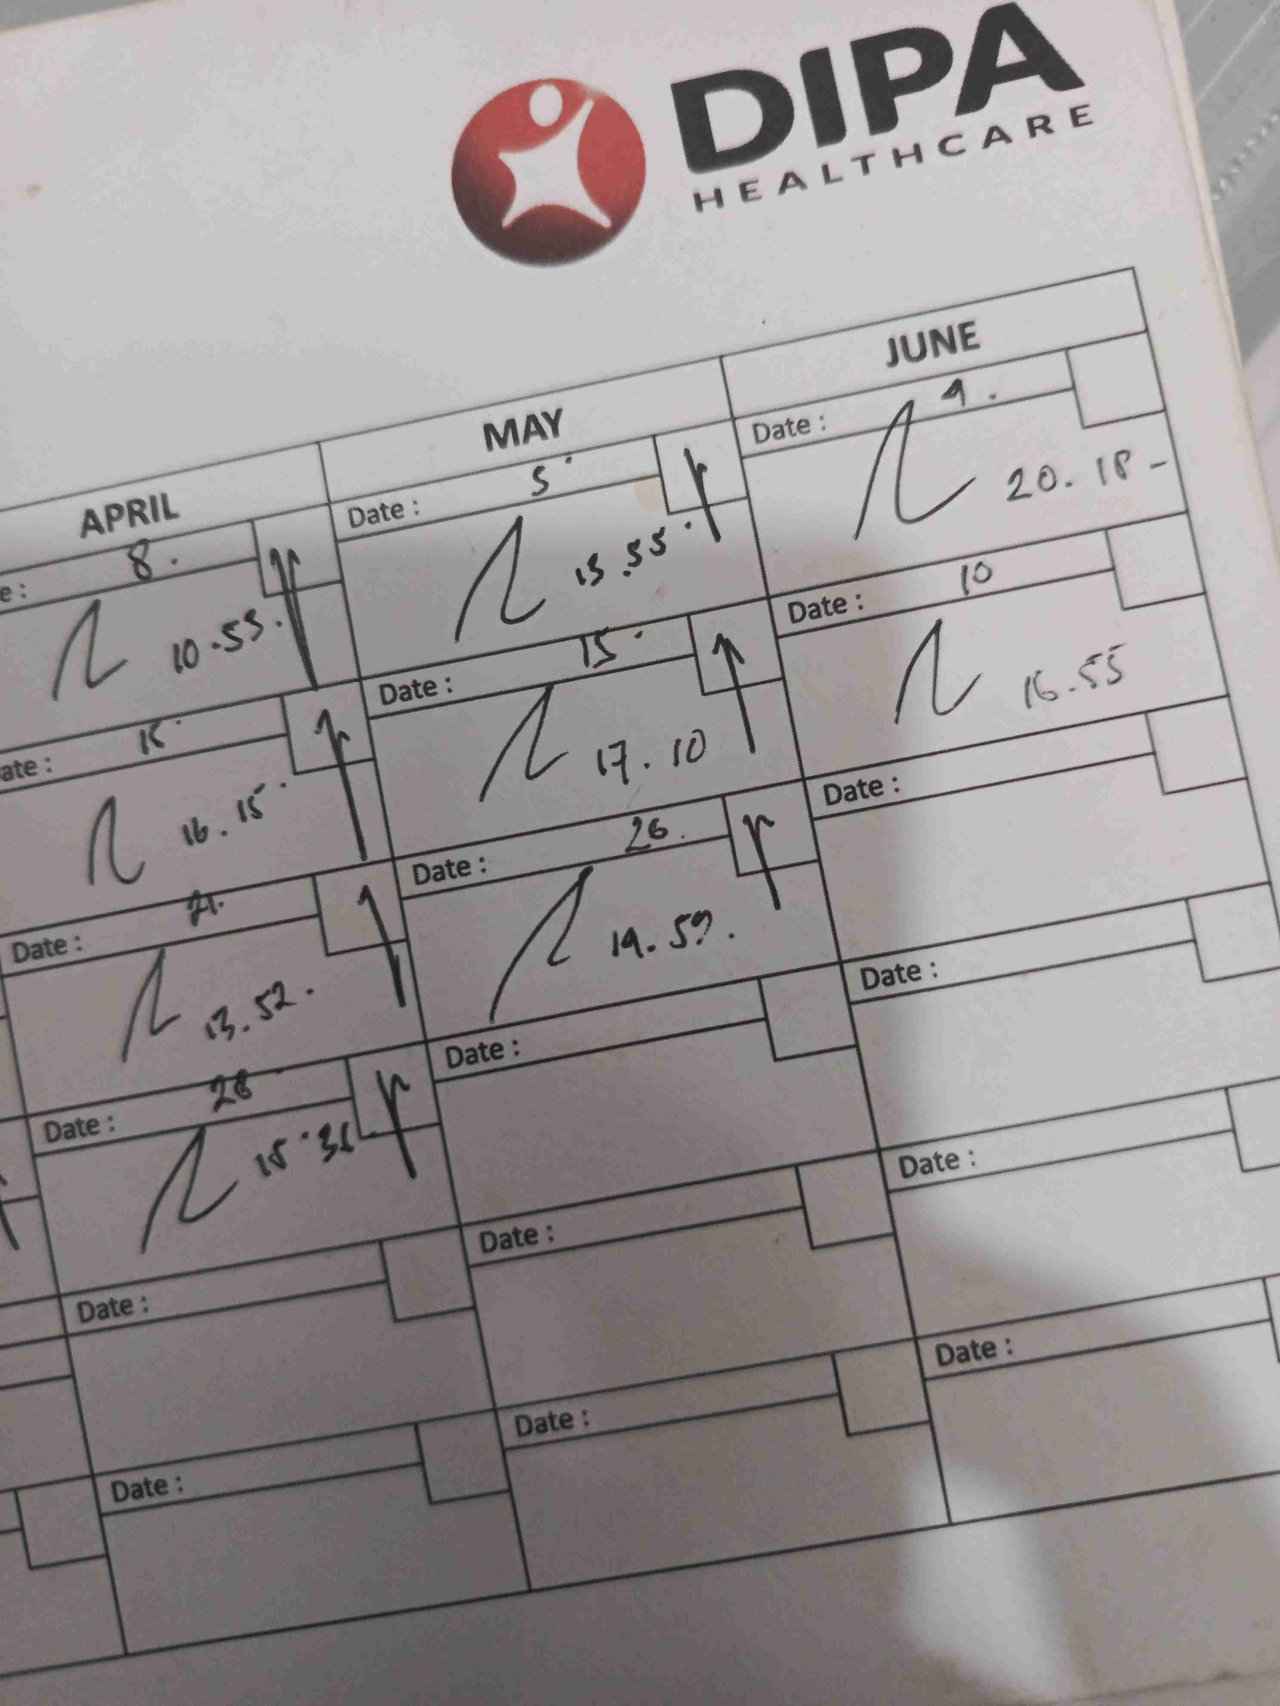 DIPA
HEALTHCARE
APRIL
MAY
JUNE
8.
10.55.
Date :
15
16.15
Date : 21.
13.52.
Date : 28
15.
Date :
Date :
Date : 5
55
Date : 15
17.10
Date : 26.
19.59.
Date :
Date :
Date :
Date : 9.
20.18-
Date : 10
16.55
Date :
Date :
Date :
Date :